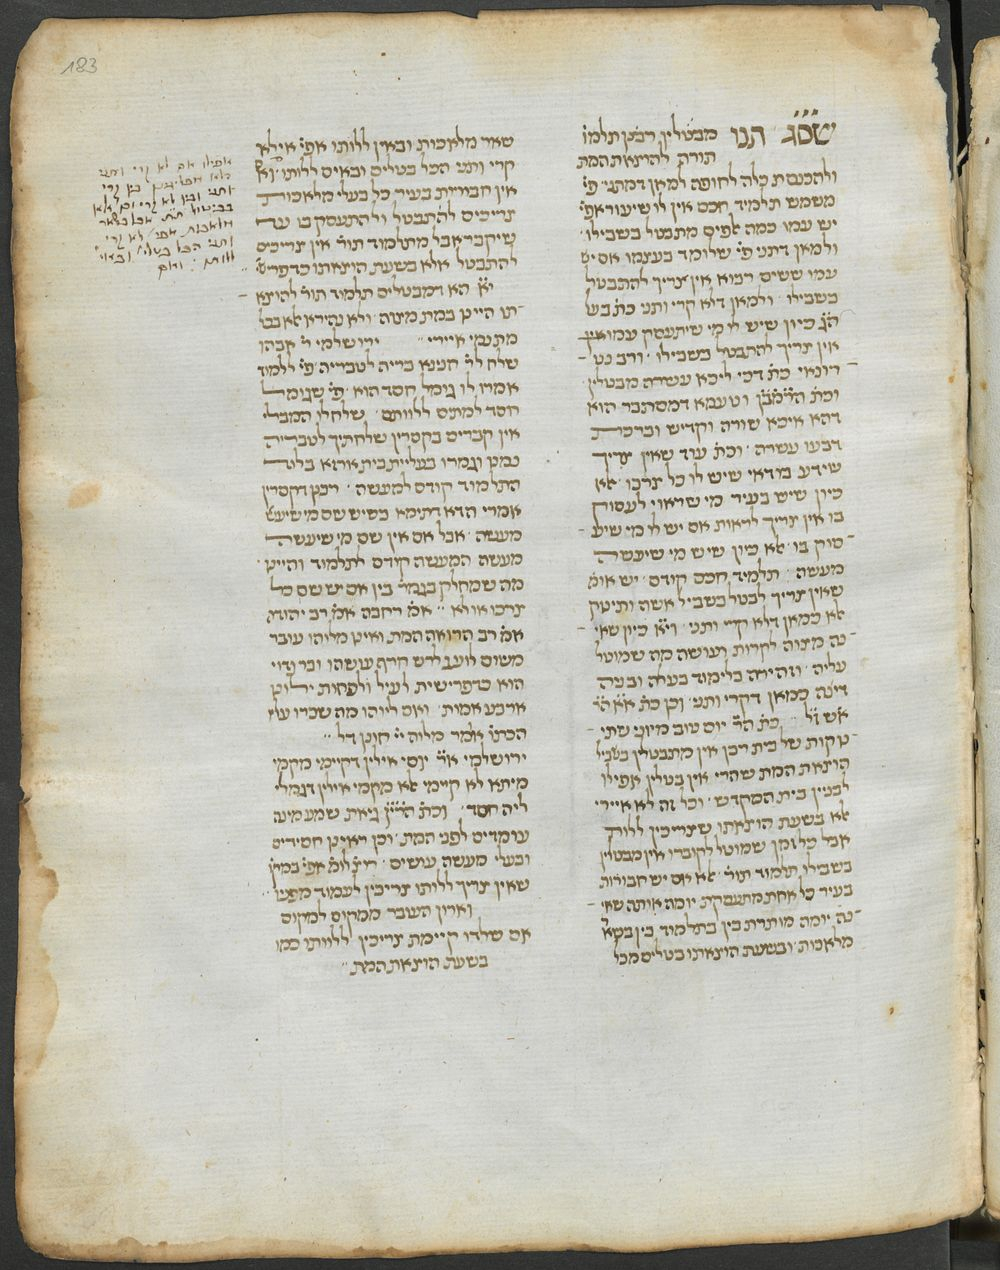 183
שסג תנו מבטלין רבנן תלמו
תורה להוצאת המת
ולהכנסת כלה לחופה למאן דמתני פי'
משמש תלמיד חכם אין לו שיעור אפי'
יש עמו כמה אלפים מתבטל בשבילו
ולמאן דתני פי' שלומד בעצמו אם יש
עמו ששים רבוא אין צריך להתבטל
בשבילו ולמאן דלא קרי ותני כת' בעל
הל' כיון שיש לו מי שיתעסק עמו אין
אין צריך להתבטל בשבילו ורב נט
רונאי כת' דכי ליכא עשרה מבטלין
וכת' הרמב"ן וטעמא דמסתבר הוא
דהא איכא שורה וקדיש וברכות
דבעו עשרה וכת' עוד שאין צריך
שידע בודאי שיש לו כל צרכו אלא
כיון שיש בעיר מי שראוי לעסוק
בו אין צריך לראות אם יש לו מי שיע
סוק בו אלא כיון שיש מי שיעשה
מעשה תלמיד חכם קודם יש אומ'
שאין צריך לבטל בשביל אשה ותינוק
אלא כמאן דלא קרי ותני וי"א כיון שאי
נה מצוה לקרות ועושה מה שמוטל
עליה וזהירה בלימוד בעלה ובניה
דינה כמאן דקרי ותני וכן כת' א"א הר'
אש ז"ל כת' הר' יום טוב מיוני שתי
נוקות של בית רבן אין מתבטלין בשביל
הוצאת המת שהרי אין בטלין אפילו
לבניין בית המקדש וכל זה לא איירי
אלא בשעת הוצאתו שצריכין ללות
אבל כל זמן שמוטל לקוברו אין מבטלין
בשבילו תלמוד תור' אלא אם יש חבורות
בעיר כל אחת מתעסקת יומה אותה שאי
נה יומה מותרת בין בתלמוד בין בשא'
מלאכות ובשעת הוצאתו בטלים מכל
שאר מלאכות ובאין ללותו אפי' אי לא
קרי ותני הכל בטלים ובאים ללותו וא'
אין חבורות בעיר כל בעלי מלאכות
צריכים להתבטל ולהתעסק בו עד
שיקבר אבל מתלמוד תור' אין צריכים
להתבטל אלא בשעת הוצאתו כדפרי'
י"א הא דמבטלים תלמוד תור' להוצא
תו היינו במת מצוה ולא נהירא אלא בכל
מת נמי איירי ירושלמי ר' אבהו
שלח לר' חנינא בריה לטבריה פי' ללמוד
אמרו לו גומל חסד הוא פי' שגומל
חסד למתים ללוותם שלח לו המבלי
אין קברים בקסרין שלחתיך לטבריה
נמנו וגמרו בעליית בית ארוא בלוד
התלמוד קודם למעשה רבנן דקסרין
אמרי הדא דתימא בשיש שם מי שיעש'
מעשה אבל אם אין שם מי שיעשה
מעשה המעשה קודם לתלמוד והיינו
מה שמחלק בגמר' בין אם יש שם כל
צרכו או לא אמ' רחבה אמ' רב יהודה
אמ' רב הרואה המת ואינו מלוהו עובר
משום לועג לרש חרף עושהו ובר נדוי
הוא כדפרישית לעיל ולפחות ילונו
ארבע אמות ואם ליוהו מה שכרו עליו
הכתו' אומר מלוה יי' חונן דל
ירושלמי א"ר יוסי אילין דקיימי מקמי
מיתא לא קיימי אלא מקמי אילין דגמלי
ליה חסד וכת' הר"ץ גיאת שמע מינה
עומדים לפני המת וכן ראינו חסידים
ובעלי מעשה עושים אפי' במקו'
שאין צריך ללותו צריכין לעמוד מפניו
וארון העובר ממקום למקום
אם שלדו קיימת צריכין ללוותו כמו
בשעת הוצאת המת
אפילו אם לא קרי ותני